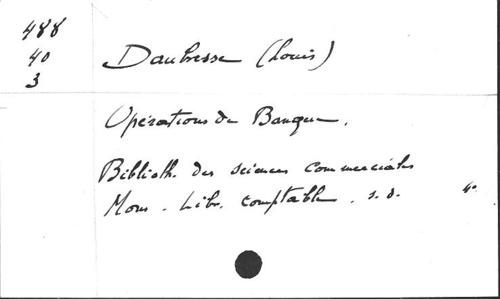 488
40
3
Daubresse (Louis)
Opérations de Banque.
Biblioth. des sciences commerciales
Mons. Libr. comptable. s.d. 4°